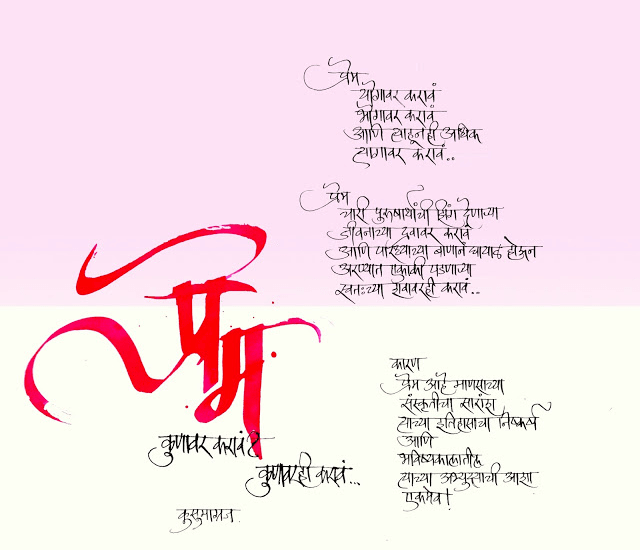 प्रेम
कुणावर करावं?
कुणावरही करावं...
प्रेम
योगावर करावं
भोगावर करावं
आणि त्याहूनही अधिक
त्यागावर करावं..
प्रेम
चारी पुरूषार्थांची झिंग देणाऱ्या
जीवनाच्या द्रवावर करावं
आणि पारध्याच्या बाणानं घायाळ होऊन
अरण्यात एकाकी पडणाऱ्या
स्वतःच्या शवावरही करावं..
कारण
प्रेम आहे माणसाच्या
संस्कृतीचा सारांश
त्याच्या इतिहासाचा निष्कर्ष
आणि
भविष्यकाळातील
त्याच्या अभ्युदयाची आशा
एकमेव!
कुसुमाग्रज